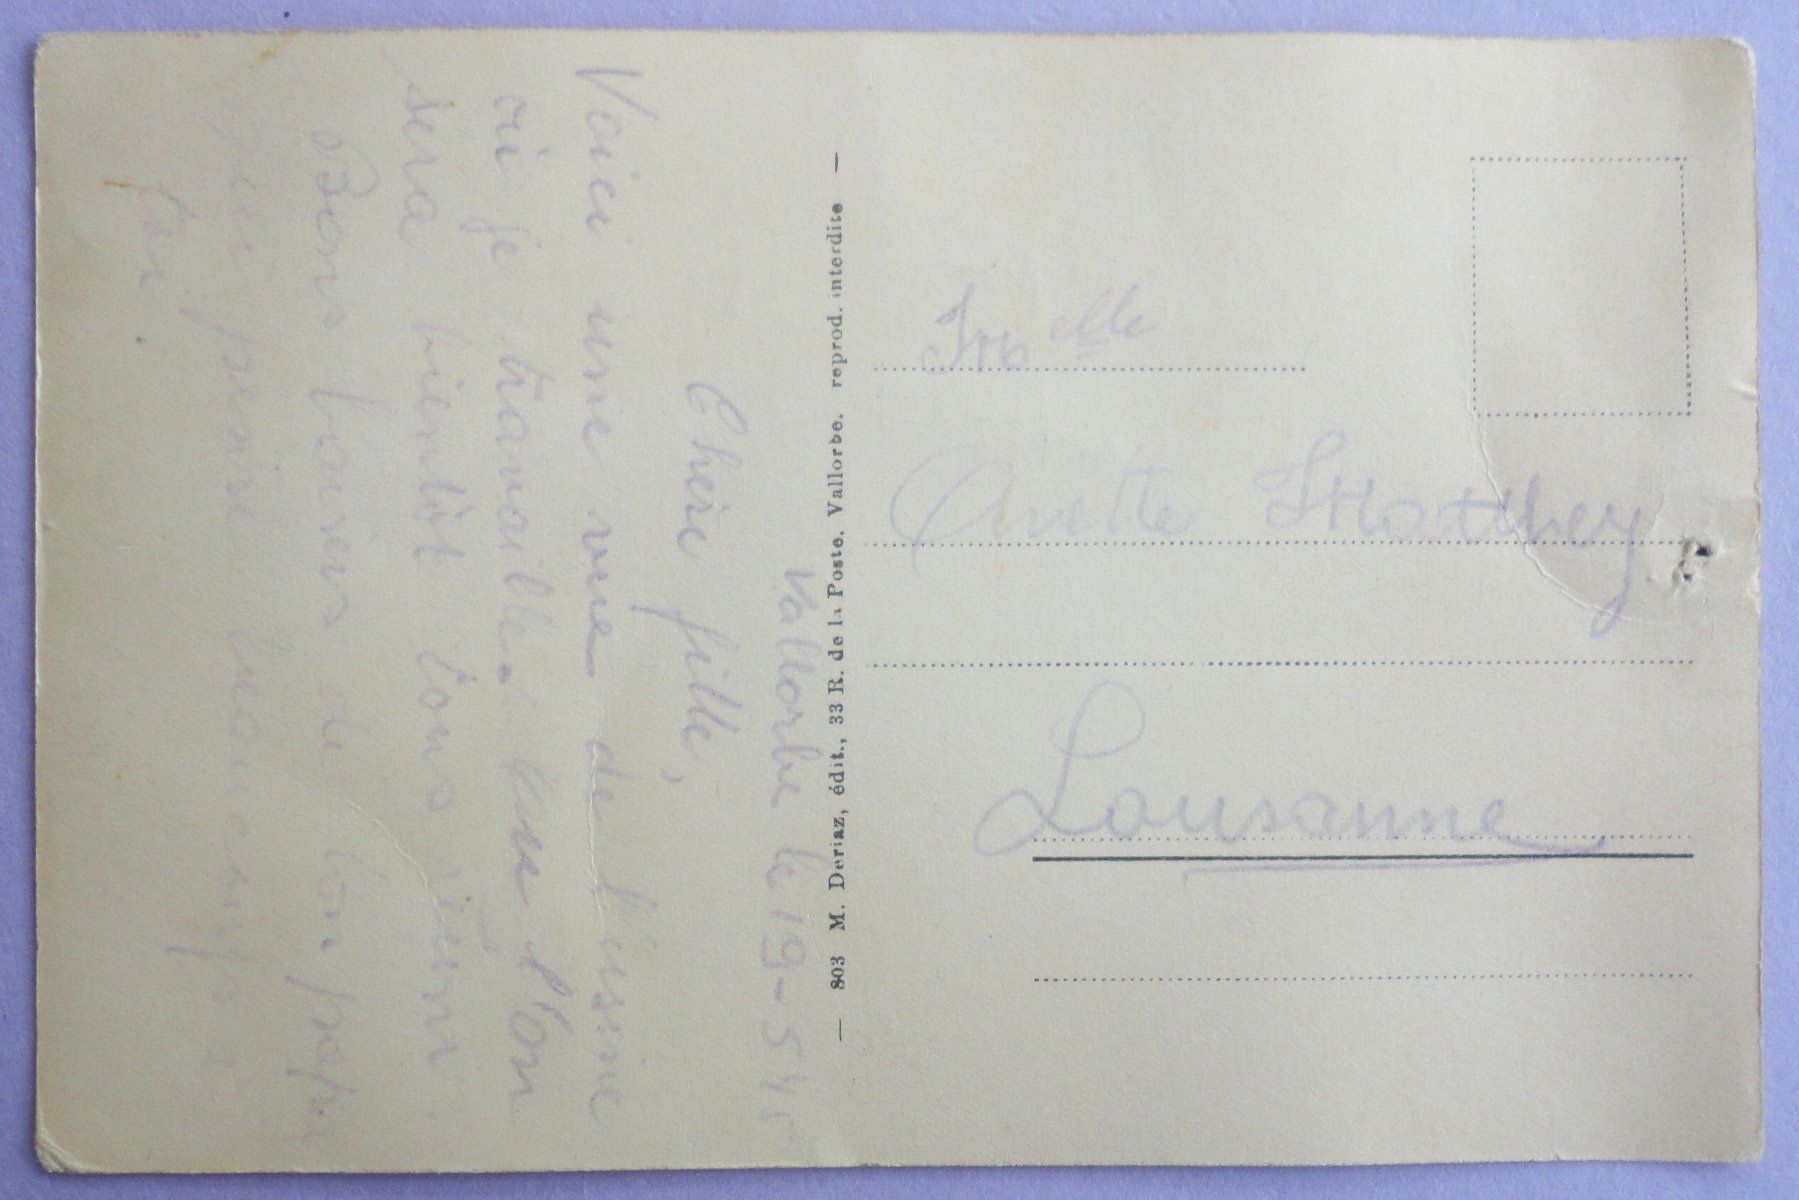 Vallorbe le 19-5 45
Chère fille,
Voici une vue de l'usine
où je travaille. l'on
sera bientôt tous réuni.
Bons baisers de ton papa
qui pense beaucoup à
toi.
— 803 M. Deriaz, édit., 33 R. de la Poste. Vallorbe. reprod. interdite —
Melle
Anette Matthey
Lausanne